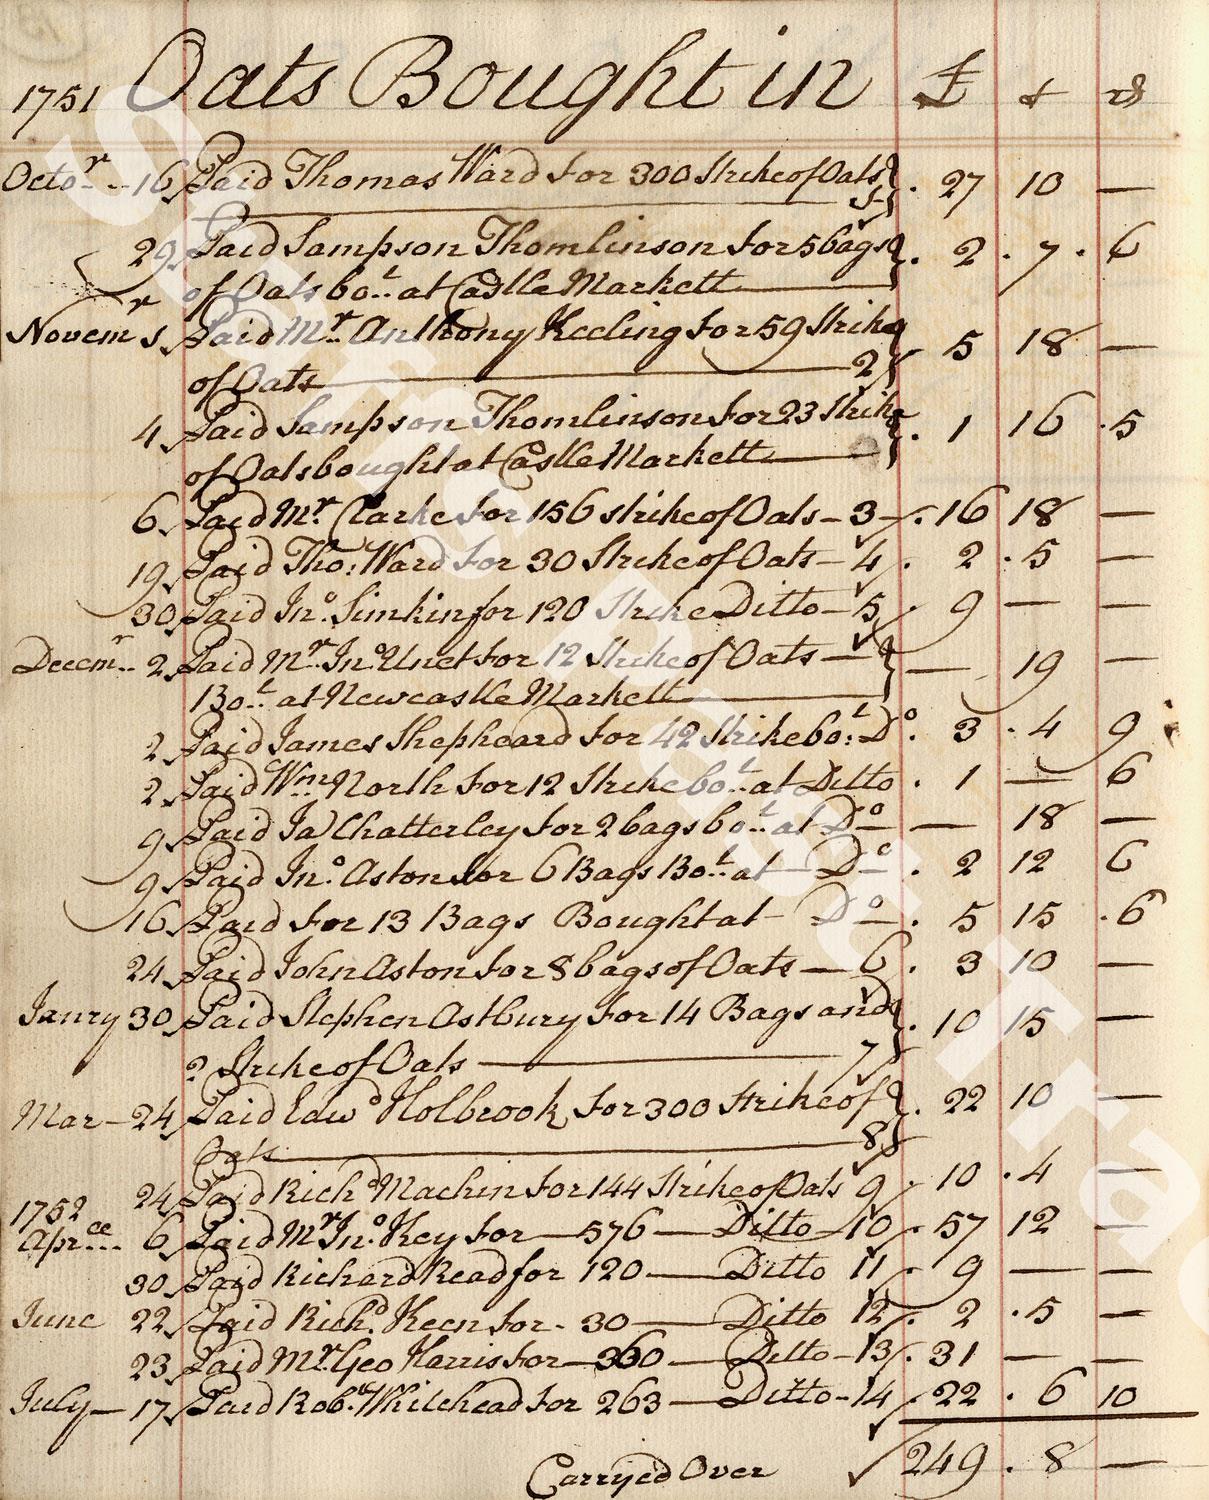 1751 Oats Bought in £ s d
Octor 16 Paid Thomas Ward for 300 Strike of Oats 27 10 —
1
29 Paid Sampson Thomlinson for 5 bags 2 7 6
of Oats bot at Castle Markett
Novemr 1 Paid Mr Anthony Keeling for 59 Strike 5 18 —
of Oats 2
4 Paid Sampson Thomlinson for 23 Strike 1 16 5
of Oats bought at Castle Markett
6 Paid Mr Clarke for 156 strike of Oats – 3 16 18 —
19 Paid Tho: Ward for 30 Strike of Oats – 4 2 5 —
30 Paid Jno Simkin for 120 Strike Ditto – 5 9 — —
Decemr 2 Paid Mr Jno Unet for 12 Strike of Oats — — 19 —
Bot at Newcastle Markett
2 Paid James Shepheard for 42 Strike bot Do 3 4 9
2 Paid Wm North for 12 Strike bot at Ditto 1 — 6
9 Paid Ja Chatterley for 2 bags bot at Do — 18 —
9 Paid Jno Aston for 6 Bags Bot at Do 2 12 6
16 Paid for 13 Bags Bought at Do 5 15 6
24 Paid John Aston for 8 bags of Oats — 6 3 10 —
Janry 30 Paid Stephen Astbury for 14 Bags and 10 15 —
2 Strike of Oats — 7
Mar 24 Paid Edwd Holbrook for 300 Strike of 22 10 —
Oats — 8
24 Paid Richd Machin for 144 Strike of Oats 9 10 4 —
1752
Aprill 6 Paid Mr Jno Key for — 576 — Ditto – 10 57 12 —
30 Paid Richard Read for 120 — Ditto 11 9 — —
June 22 Paid Richd Keen for - 30 — Ditto 12 2 5 —
23 Paid Mr Geo Harris for — 360 — Ditto – 13 31 — —
July 17 Paid Robt Whitehead for 263 — Ditto – 14 22 6 10
Carryed Over 249 8 —